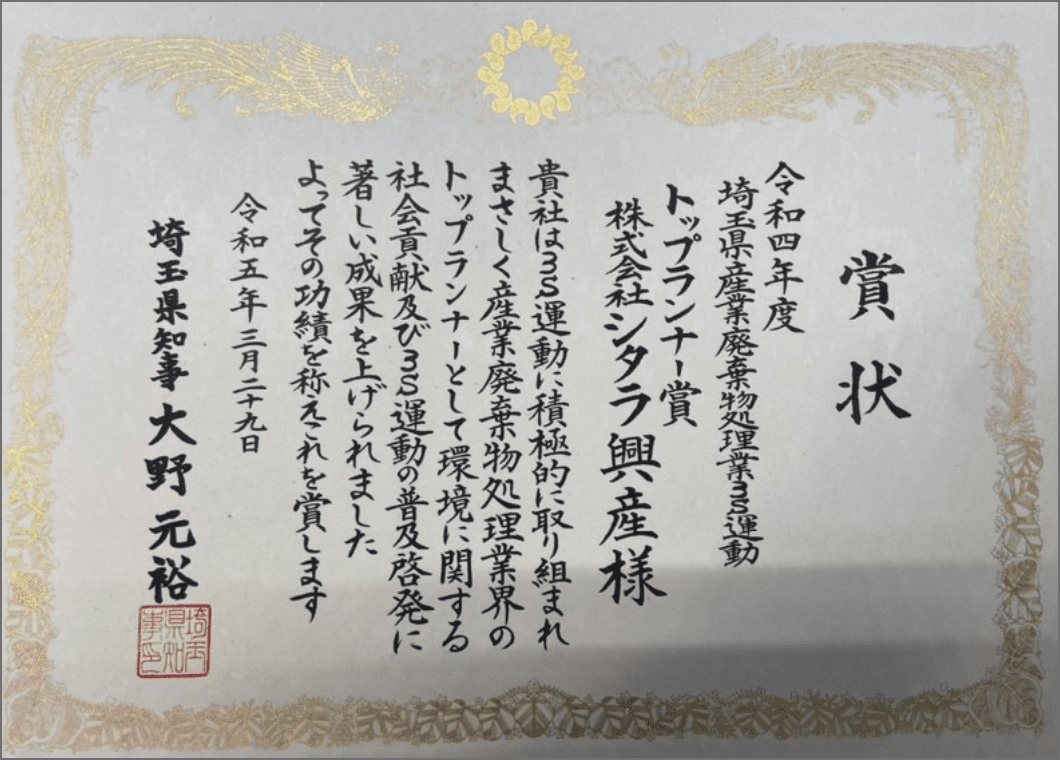 賞状
令和四年度
埼玉県産業廃棄物処理業3S運動
トップランナー賞
株式会社シタラ興産様
貴社は3S運動に積極的に取り組まれ
まさしく産業廃棄物処理業界の
トップランナーとして環境に関する
社会貢献及び3S運動の普及啓発に
著しい成果を上げられました
よってその功績を称えこれを賞します
令和五年三月二十九日
埼玉県知事 大野元裕
埼玉
県知
事印